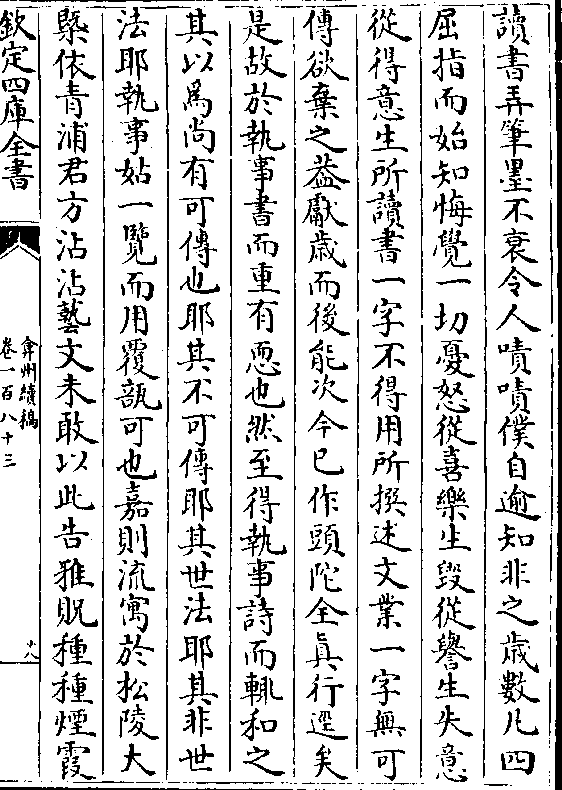 讀書弄筆墨不衰令人嘖嘖僕自逾知非之歳數凡四
屈指而始知悔覺一切憂怒從喜樂生毀從譽生失意
從得意生所讀書一字不得用所撰述文業一字無可
傳欲棄之葢獻歳而後能次今已作頭陀全眞行逕矣
是故於執事書而重有恧也然至得執事詩而輙和之
其以爲尚有可傳也耶其不可傳耶其世法耶其非世
法耶執事姑一覽而用覆瓿可也嘉則流寓於松陵大
槩依青浦君方沾沾藝文未敢以此告雅貺種種煙霞
欽定四庫全書
弇州續稿
卷一百八十三
十八